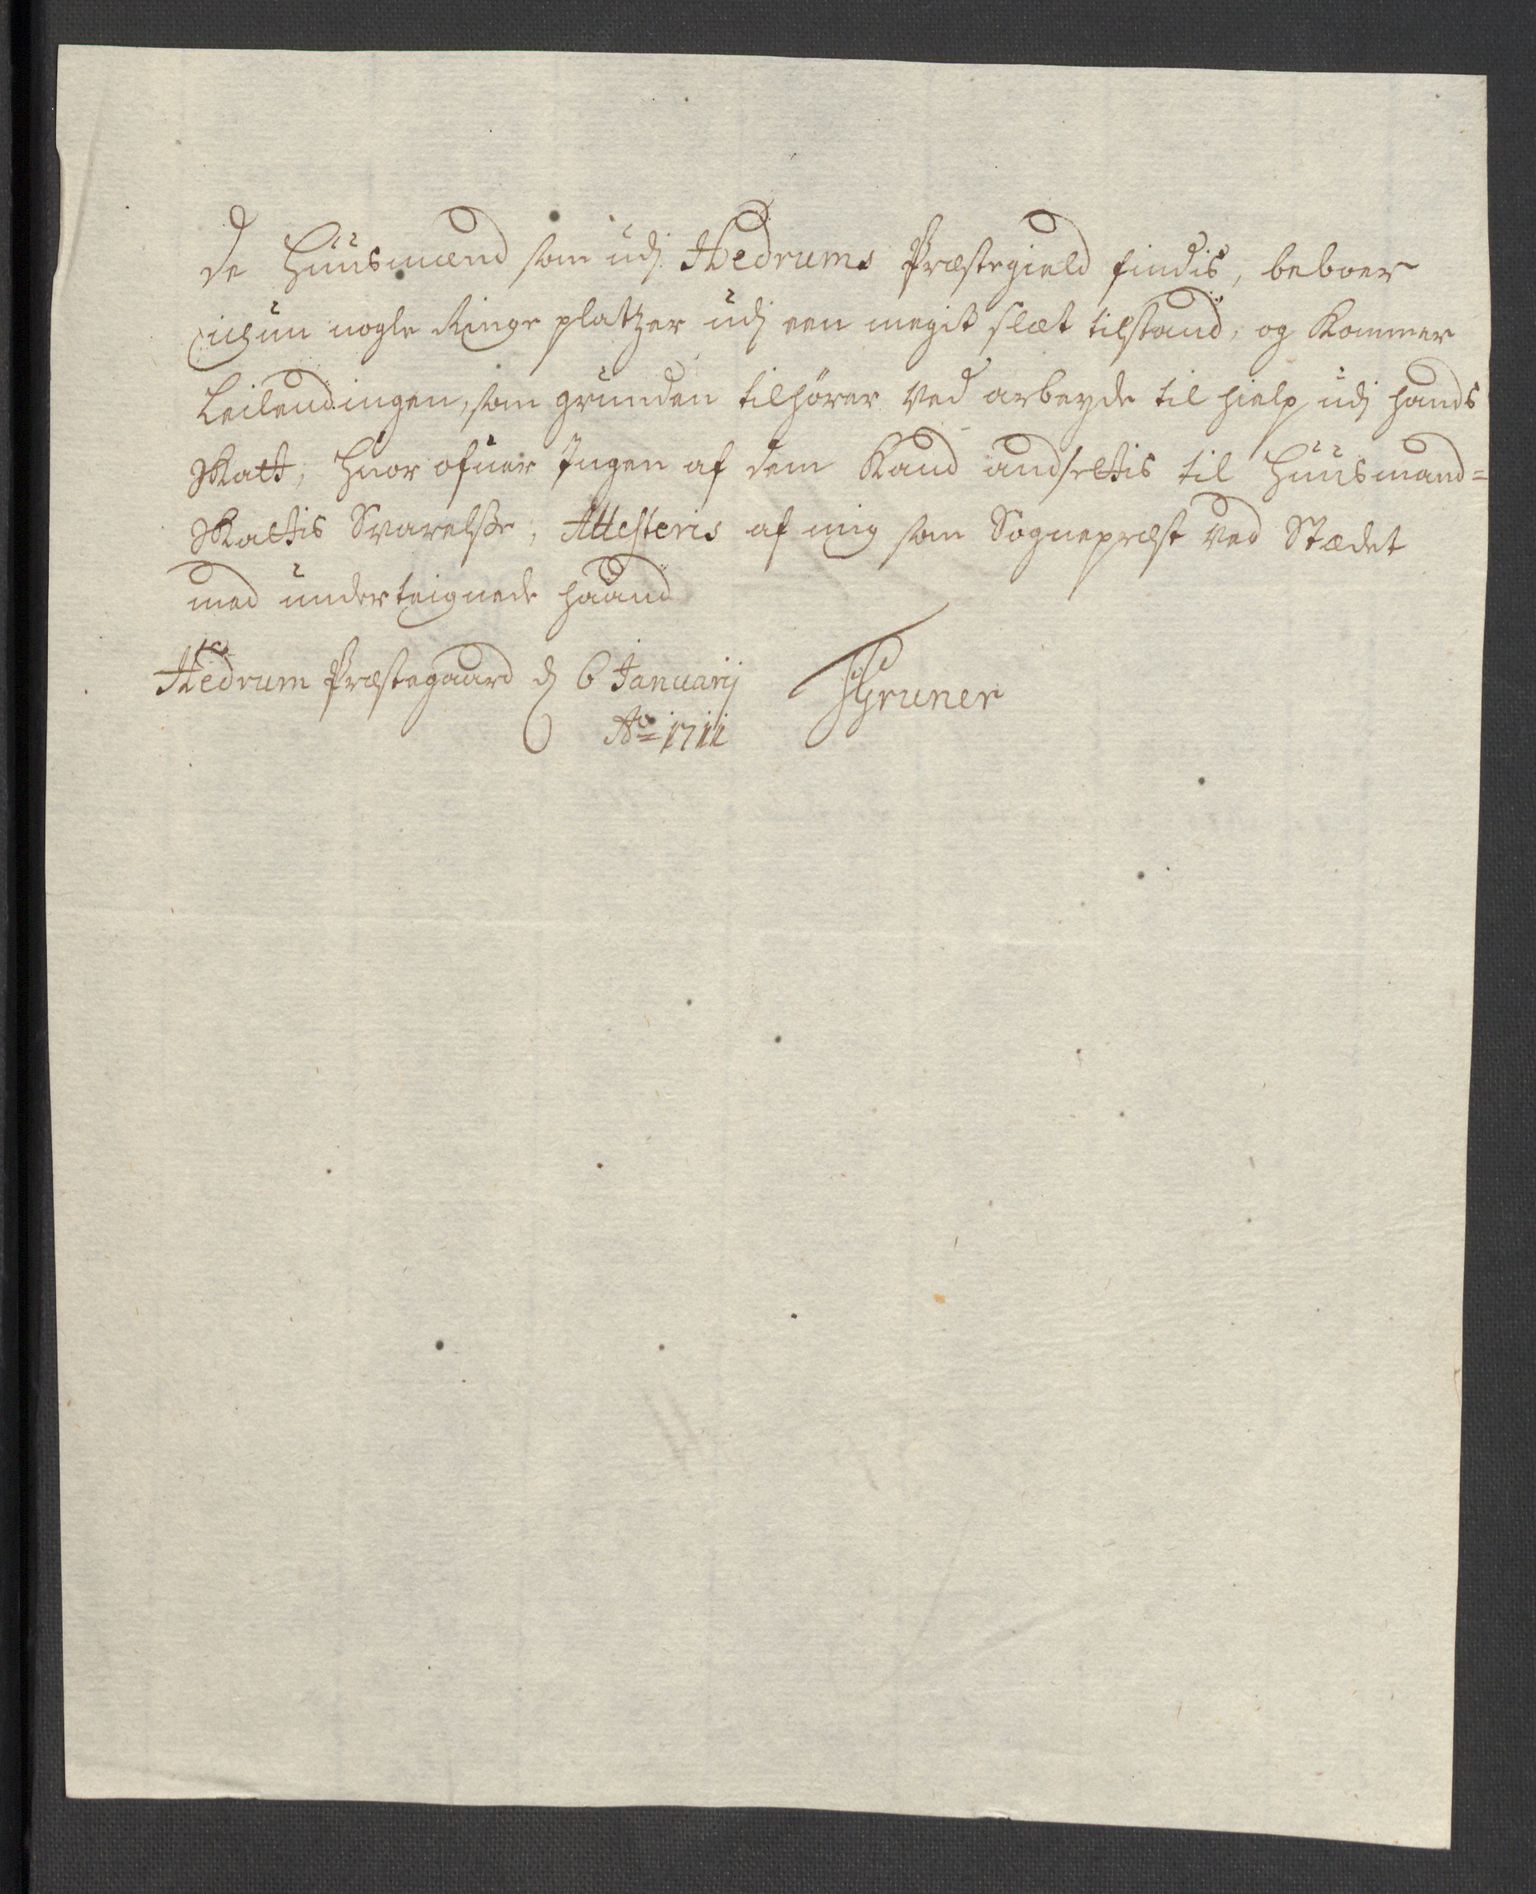 De Huusmænd som udj Hedrums Præstegield findis, beboer
ickun nogle Ringe platzer udj een megit slæt tilstand, og Kommer
Leilendingen, som grunden tilhörer ved arbeyde til hielp udj hands
Skatt, huor ofuer Ingen af dem Kand andsettis til Huusmand=
Skattis Svarelsße, Attesteris af mig som Sognepræst ved Stædet
med underteignede haand
Hedrum Præstegaard d 6 Januarij
Ao= 1711
Gruner